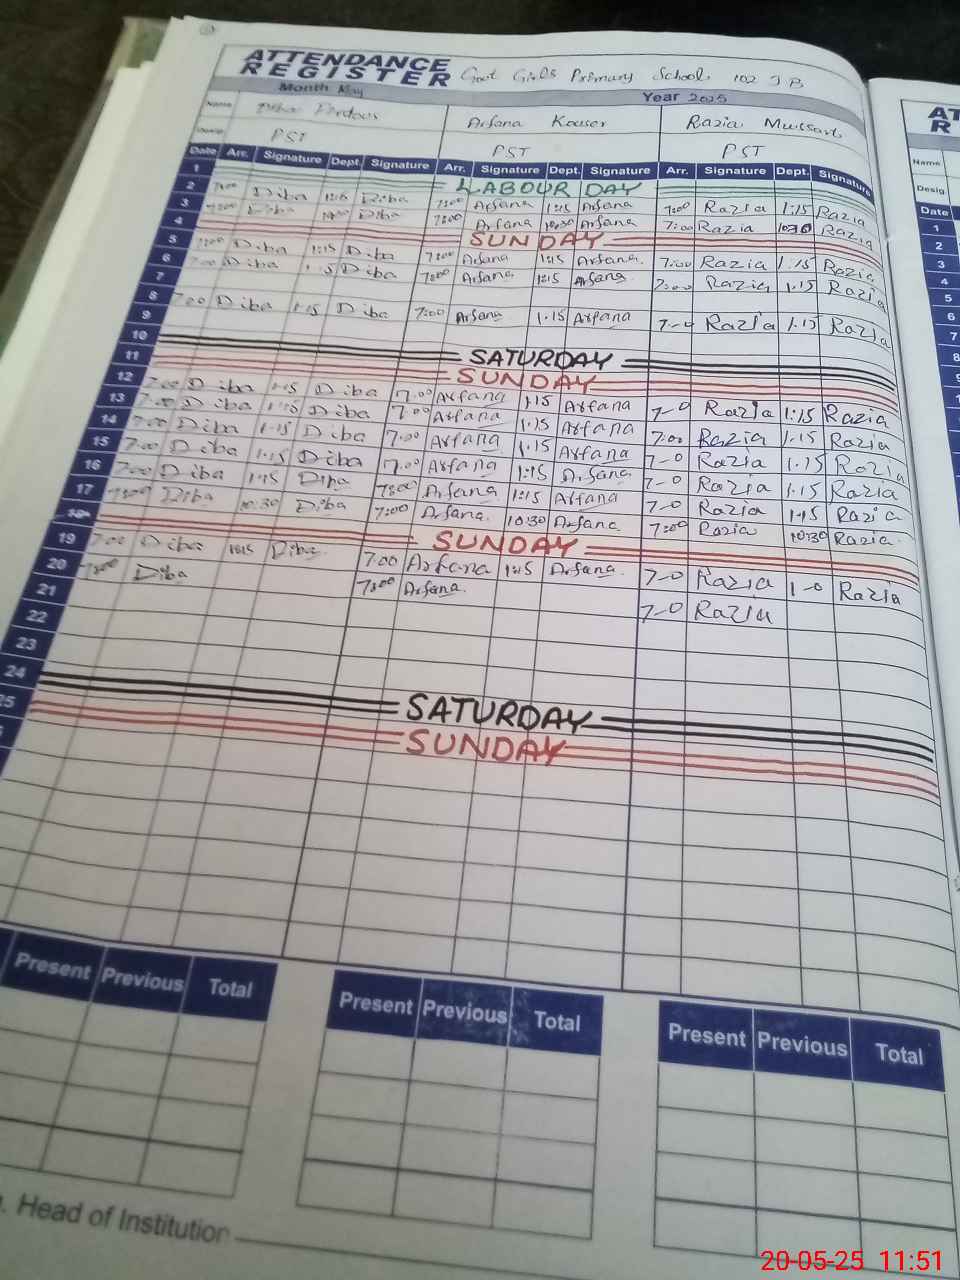 ATTENDANCE REGISTER Govt Girls Primary School 102 J B
Month May Year 2025
Name Diba Ferdous Arfana Kouser Razia Mussarat
PST PST PST
Date Arr. Signature Dept. Signature Arr. Signature Dept. Signature Arr. Signature Dept. Signature
1 LABOUR DAY
2 7:00 Diba 1:15 Diba 7:00 Arfana 1:15 Arfana 7:00 Razia 1:15 Razia
3 7:00 Diba 10:30 Diba 7:00 Arfana 10:30 Arfana 7:00 Razia 10:30 Razia
4 SUNDAY
5 7:00 Diba 1:15 Diba 7:00 Arfana 1:15 Arfana. 7:00 Razia 1:15 Razia
6 7:00 Diba Diba 7:00 Arfana 1:15 Arfana 7:00 Razia 1.15 Razia
7
8 7:00 Diba 1:15 Diba 7:00 Arfana 1.15 Arfana 7-0 Razia 1.15 Razia
9
10 SATURDAY
11 SUNDAY
12 7.00 Diba 1.15 Diba 7.00 Arfana 1.15 Arfana 7-0 Razia 1:15 Razia
13 7.00 Diba 1.15 Diba 7.00 Arfana 1.15 Arfana 7:00 Razia 1.15 Razia
14 7:00 Diba 1.15 Diba 7.00 Arfana 1.15 Arfana 7-0 Razia 1.15 Razia
15 7:00 Diba 1.15 Diba 7.00 Arfana 1:15 Arfana 7-0 Razia 1.15 Razia
16 7:00 Diba 1:15 Diba 7:00 Arfana 1:15 Arfana 7-0 Razia 1:15 Razia
17 7:00 Diba 10:30 Diba 7:00 Arfana. 10:30 Arfana 7:00 Razia 10:30 Razia.
SUNDAY
19 7:00 Diba 1:15 Diba 7.00 Arfana 1:15 Arfana. 7-0 Razia 1-0 Razia
20 7:00 Diba 7:00 Arfana. 7-0 Razia
21
22
23
24 SATURDAY
25 SUNDAY
Present Previous Total Present Previous Total Present Previous Total
Head of Institution
AT
R
Name
Desig
Date
1
2
3
4
5
6
7
8
20-05-25 11:51